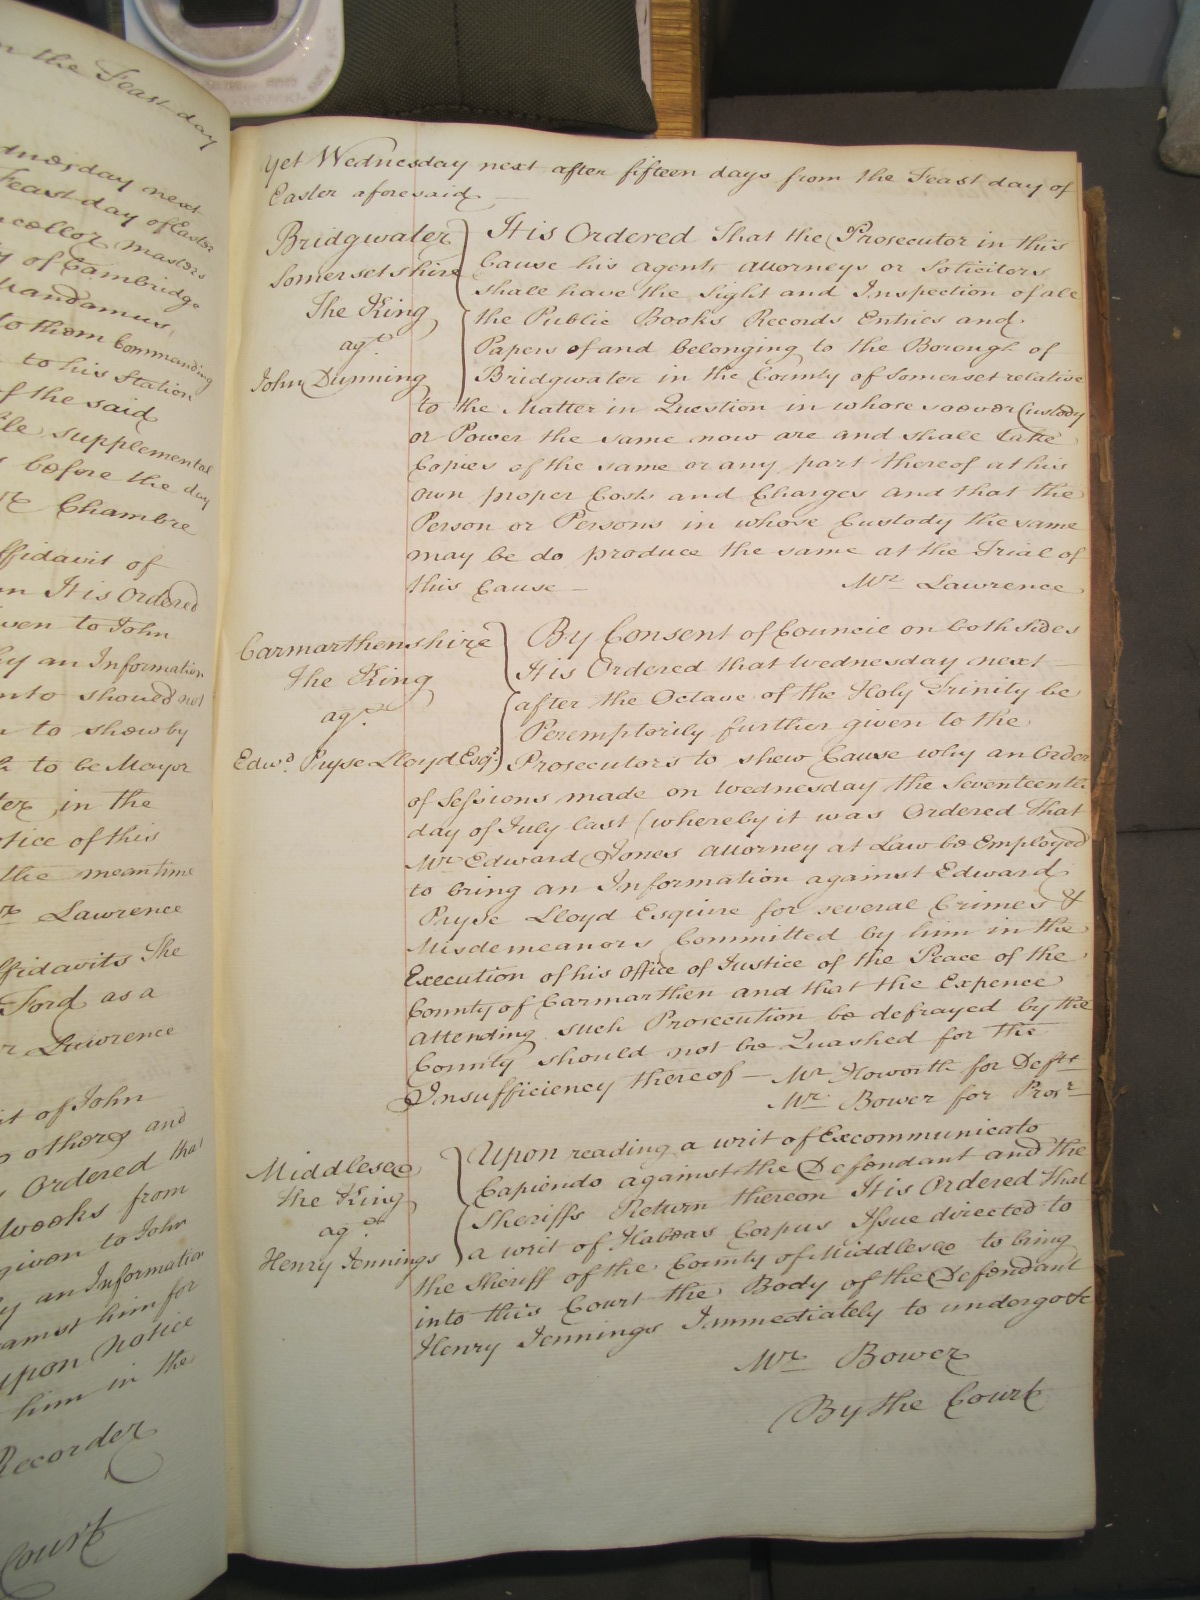 n the Feast day
dnesday next
Feast day of Easter
ncellor masters
y of Cambridge
Mandamus
to them Commanding
to his Station
f the said
file supplemental
s before the day
Mr Chambre
ffidavit of
n It is Ordered
iven to John
by an Information
nto should not
n to shew by
to be Mayor
in the
otice of this
the meantime
Mr Lawrence
ffidavits The
Ford as a
Mr Lawrence
it of John
others and
Ordered that
weeks from
given to John
by an Information
against him for
upon Notice
him in the
Recorder
Court
Yet Wednesday next after fifteen days from the Feast day of
Easter aforesaid —
Bridgwater
Somersetshire
The King
agt
John Dunning
It is Ordered That the Prosecutor in this
Cause his agents Attorneys or Solicitors
shall have the Sight and Inspection of all
the Public Books Records Entries and
Papers of and belonging to the Borough of
Bridgwater in the County of Somerset relative
to the Matter in Question in whose soever Custody
or Power the same now are and shall take
Copies of the same or any part thereof at his
own proper Costs and Charges and that the
Person or Persons in whose Custody the same
may be do produce the same at the Trial of
this Cause — Mr Lawrence
Carmarthenshire
The King
agt
Edwd. Pryse Lloyd Esqr.
By Consent of Councie on both sides
It is Ordered that Wednesday next —
after the Octave of the Holy Trinity be
Peremptorily further given to the
Prosecutors to shew Cause why an Order
of Sessions made on Wednesday the Seventeenth
day of July last (whereby it was Ordered that
Mr Edward Jones Attorney at Law be Employed
to bring an Information against Edward
Pryse Lloyd Esquire for several Crimes &
Misdemeanors Committed by him in the
Execution of his Office of Justice of the Peace of the
County of Carmarthen and that the Expence
attending such Prosecution be defrayed by the
County should not be Quashed for the
Insufficiency thereof — Mr Howorth for Deft
Mr Bower for Prosr
Middlesex
The King
agt
Henry Jennings
Upon reading a writ of Excommunicato
Capiendo against the Defendant and the
Sheriffs Return thereon It is Ordered that
a writ of Habeas Corpus Issue directed to
the Sheriff of the County of Middlesex to bring
into this Court the Body of the Defendant
Henry Jennings Immediately to undergo &c
Mr Bower
By the Court